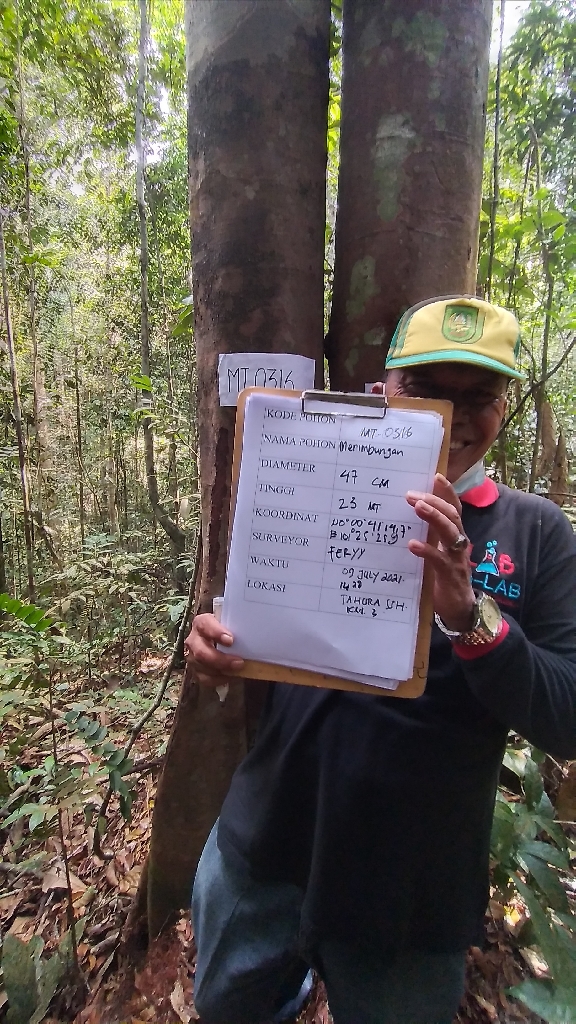 MT 0316
KODE POHON MT-0316
NAMA POHON Merimbungan
DIAMETER 47 CM
TINGGI 23 MT
KOORDINAT N0°00'41,197"
E 101°25'
SURVEYOR FERYY
WAKTU 09 JULY 2021.
LOKASI TAHURA SSH.
KM. 3
LAB
-LAB